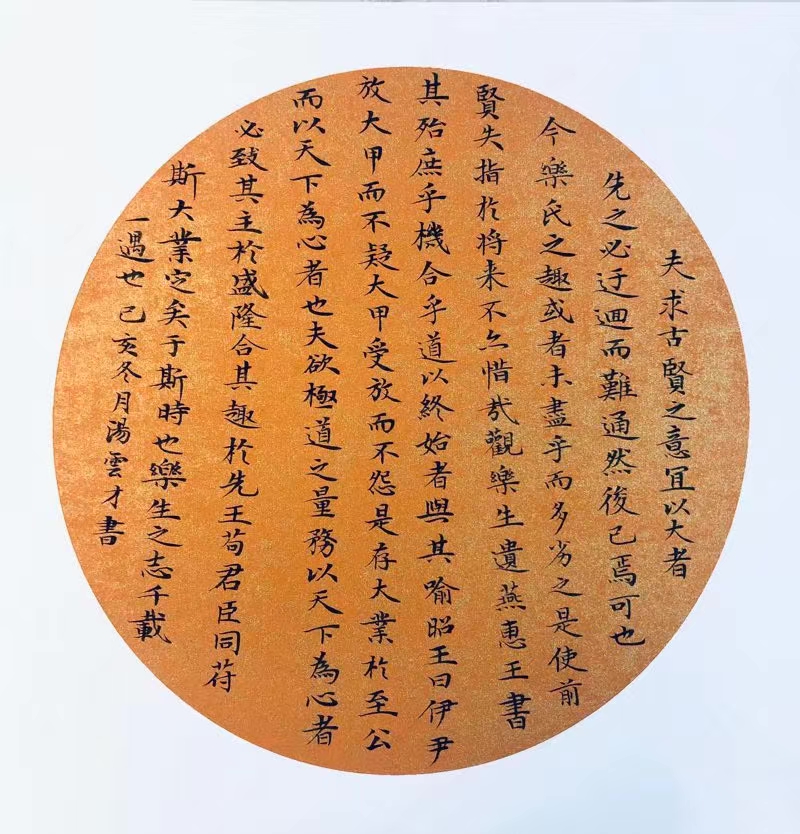 夫求古賢之意宜以大者
先之必迂迴而難通然後已焉可也
今樂氏之趣或者未盡乎而多劣之是使前
賢失指於将来不亦惜哉觀樂生遺燕惠王書
其殆庶乎機合乎道以終始者與其喻昭王曰伊尹
放大甲而不疑大甲受放而不怨是存大業於至公
而以天下為心者也夫欲極道之量務以天下為心者
必致其主於盛隆合其趣於先王苟君臣同苻
斯大業定矣于斯時也樂生之志千載
一遇也己亥冬月湯雲才書